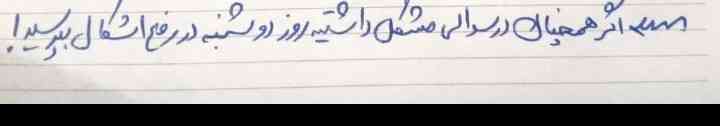 اگر همچنان در سوالی مشکل داشتید روز دوشنبه در رفع اشکال بپرسید!